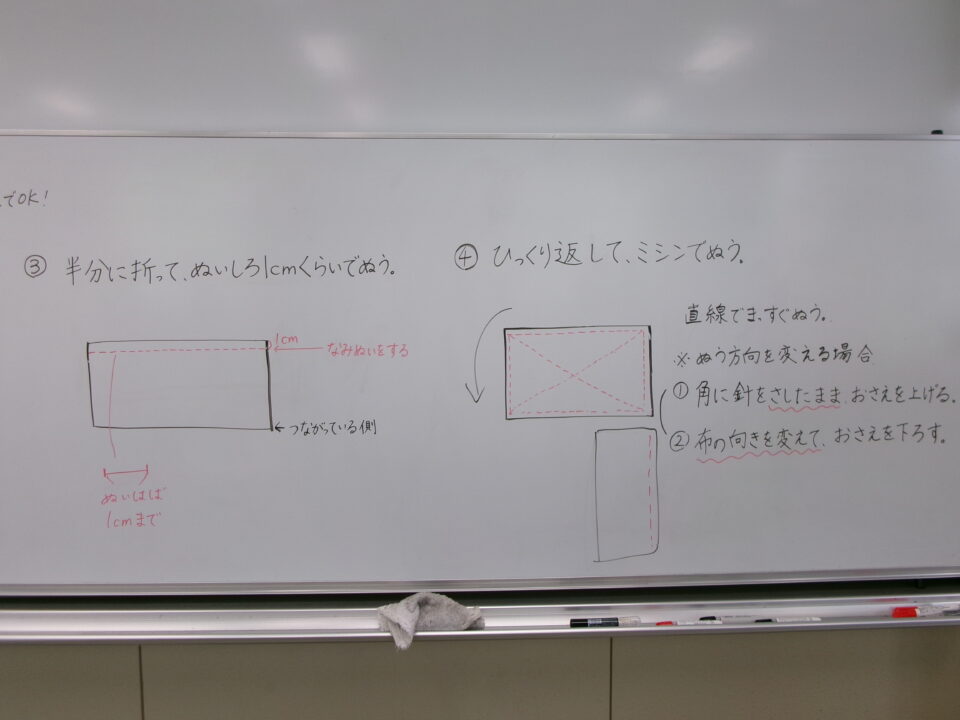 でOK!
③ 半分に折って、ぬいしろ1cmくらいでぬう。
1cm
なみぬいをする
←つながっている側
ぬいはば
1cmまで
④ ひっくり返して、ミシンでぬう。
直線でまっすぐぬう。
※ぬう方向を変える場合
① 角に針をさしたまま、おさえを上げる。
② 布の向きを変えて、おさえを下ろす。